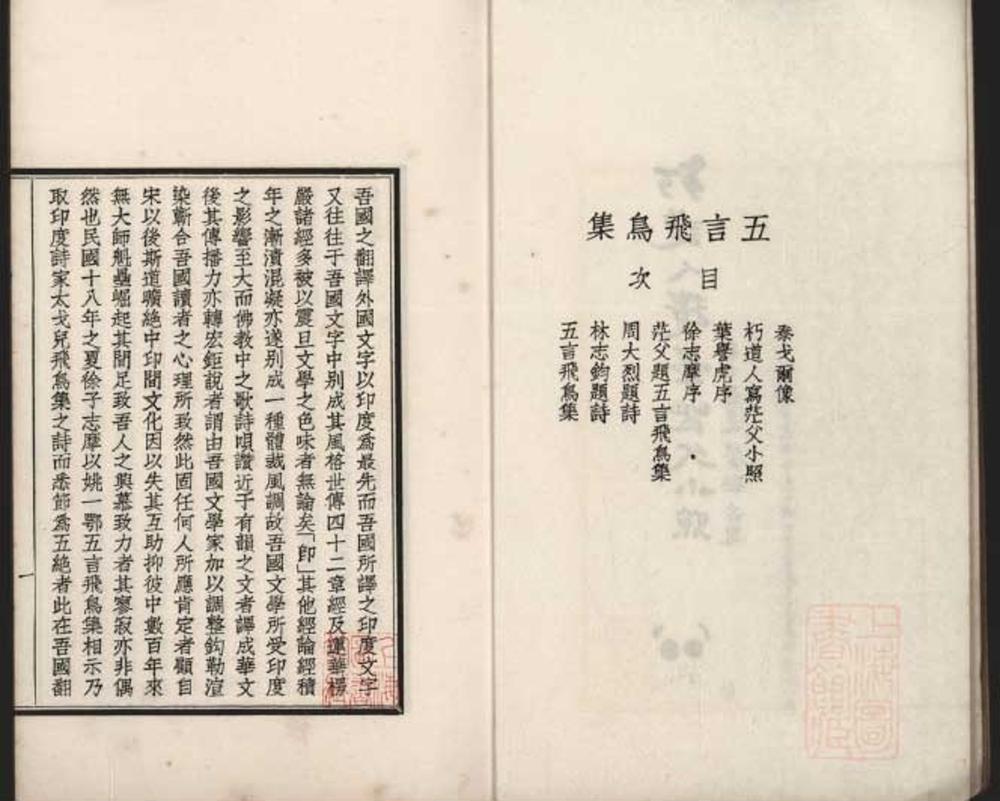 五言飛鳥集
目次
泰戈爾像
朽道人寫茫父小照
葉譽虎序
徐志摩序
茫父題五言飛鳥集
周大烈題詩
林志鈞題詩
五言飛鳥集
上海圖書館藏
吾國之翻譯外國文字以印度爲最先而吾國所譯之印度文字
又往往于吾國文字中别成其風格世傳四十二章經及蓮華楞
嚴諸經多被以震旦文學之色味者無論矣「卽」其他經論經積
年之漸漬混凝亦遂别成一種體裁風調故吾國文學所受印度
之影響至大而佛教中之歌詩唄讚近于有韻之文者譯成華文
後其傳播力亦轉宏鉅說者謂由吾國文學家加以調整鈎勒渲
染蘄合吾國讀者之心理所致然此固任何人所應肯定者顧自
宋以後斯道曠絶中印間文化因以失其互助抑彼中數百年來
無大師魁壘崛起其間足致吾人之興慕致力者其寥寂亦非偶
然也民國十八年之夏徐子志摩以姚一鄂五言飛鳥集相示乃
取印度詩家太戈兒飛鳥集之詩而悉節爲五絶者此在吾國翻
一